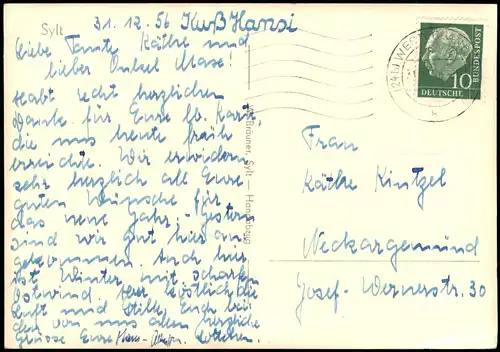 Sylt
31.12.56 Kuß Hansi
Liebe Tante Käthe und
lieber Onkel Mase!
Habt recht herzlichen
Dank für Eure lb. Karte
die uns heute früh
erreichte. Wir erwidern
sehr herzlich all Eure
guten Wünsche für
das neue Jahr. Gestern
sind wir gut hier an-
gekommen. Auch hier
ist Winter mit scharfem
Ostwind. Aber köstliche
Luft und Stille. Euch bei-
den von uns allen herzliche
Grüsse Eure
Bräuner, Sylt - Hamburg
10
DEUTSCHE
BUNDESPOST
(24b) WES
Frau
Käthe Kintzel
Neckargemünd
Josef-Wernerstr. 30